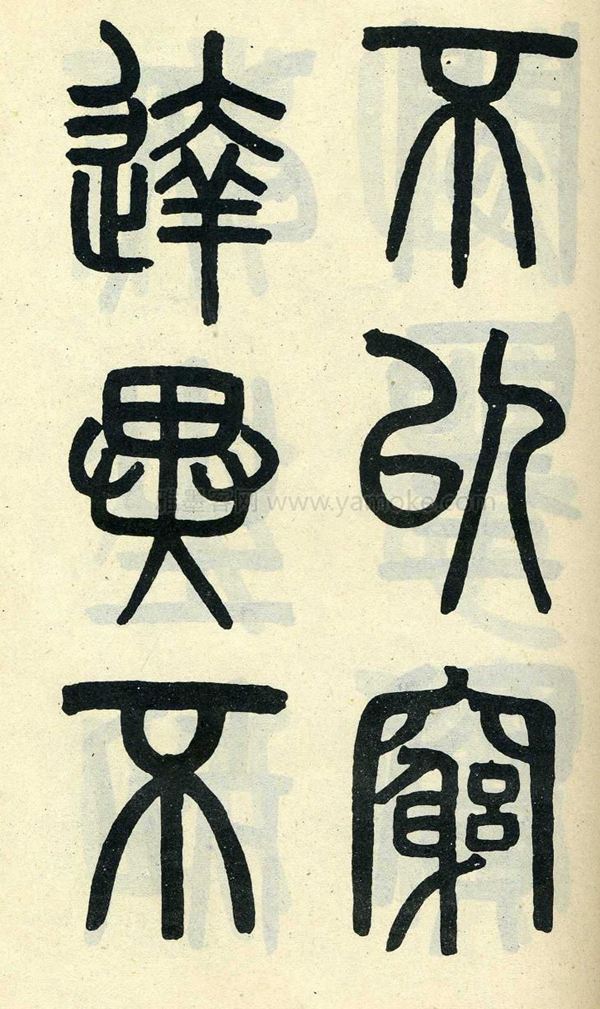 不以窮
達異不
墨客网 www.yamoke.com